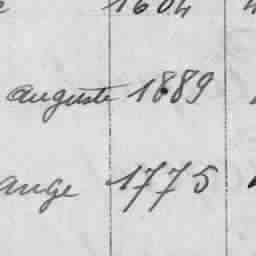 1604
auguste 1889
ange 1775